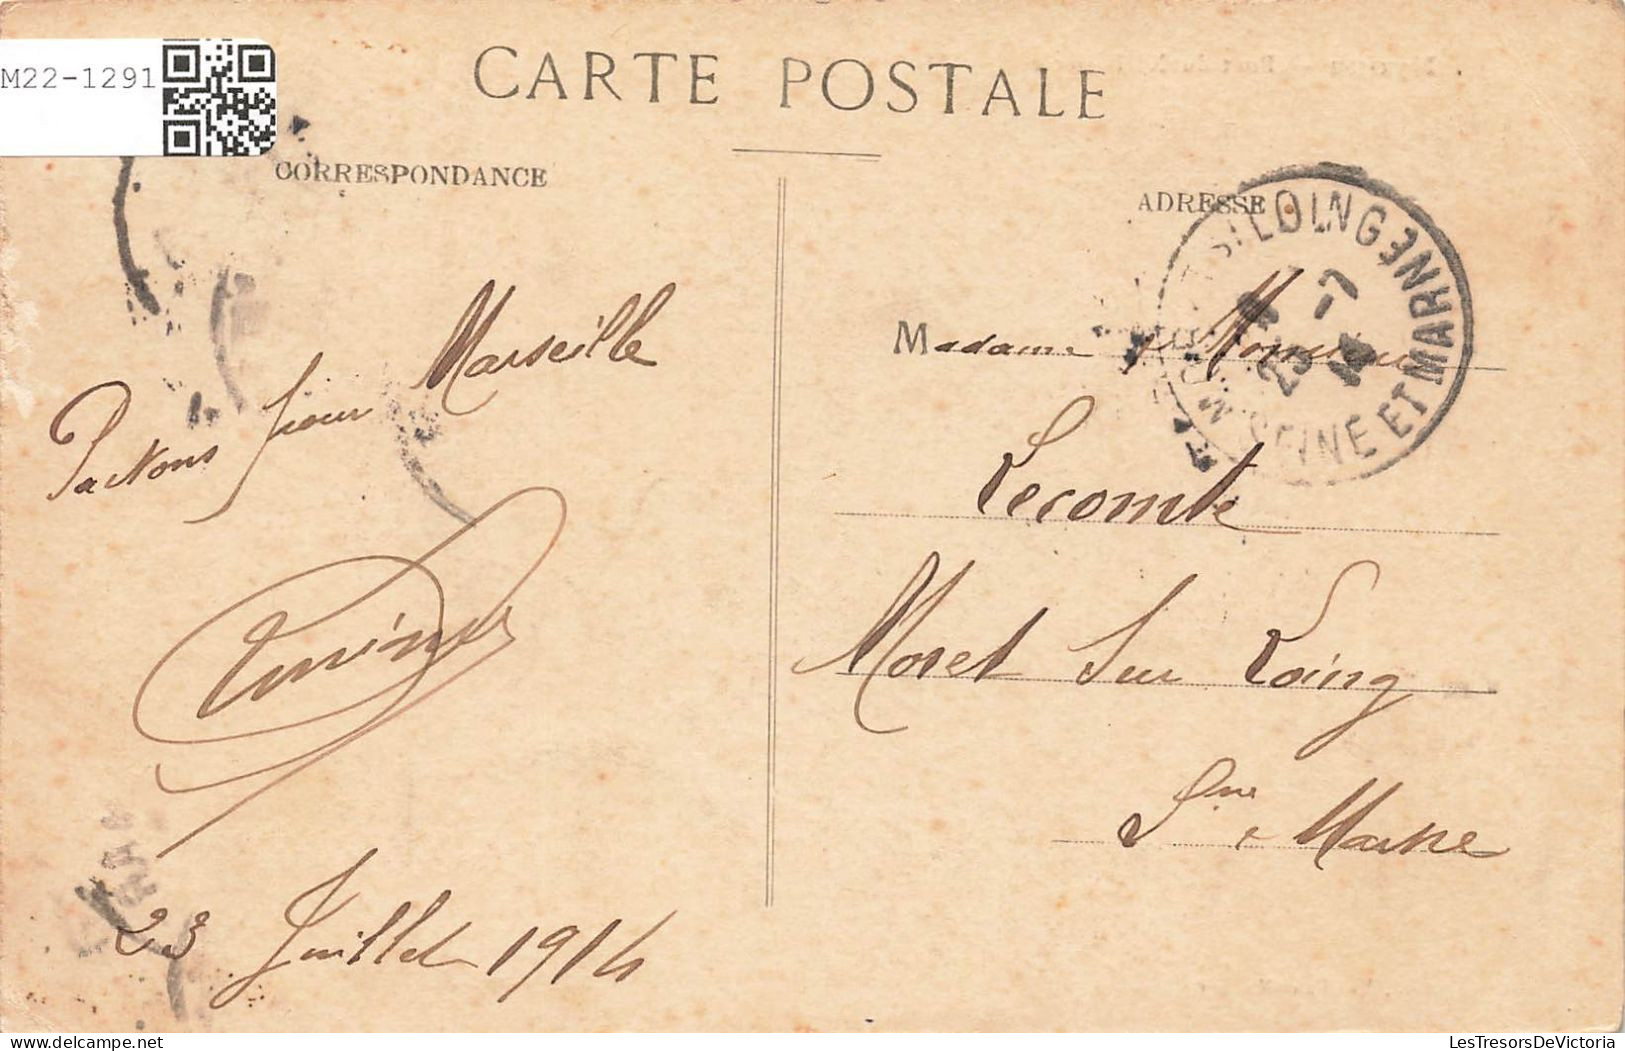 M22-1291
CARTE POSTALE
CORRESPONDANCE
ADRESSE
MORET S/ LOING SEINE ET MARNE
25 -7 14
Partons pour Marseille
23 Juillet 1914
Madame & Monsieur
Lecomte
Moret Sur Loing
Sne & Marne
LesTresorsDeVictoria